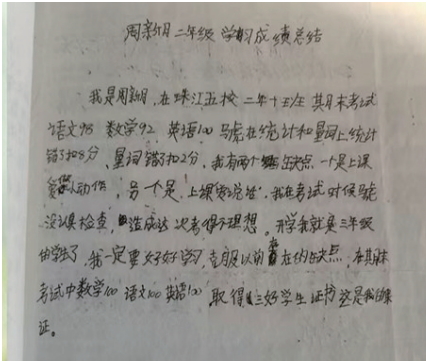 周新明二年级学期成绩总结
我是周新明,在珠江五校二年十五班 其月末考试
语文98 数学92 英语100 马虎在统计和量词上统计
错了扣8分、量词错了扣2分,我有两个缺点 一个是上课
爱做小动作,另一个是上课爱说话,我在考试时候马虎
没认真检查,造成这次考得不理想。开学我就是三年级
的学生了,我一定要好好学习,克服以前存在的缺点,在其末
考试中数学100 语文100 英语100 取得三好学生证书 这是我的保
证。